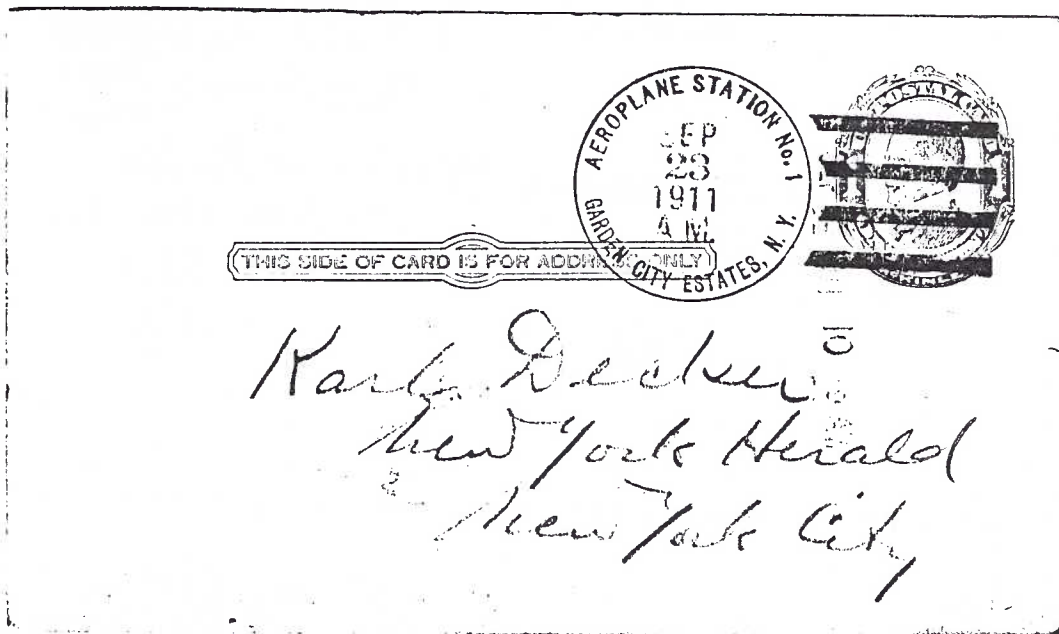 AEROPLANE STATION No. 1
SEP
23
1911
A M
GARDEN CITY ESTATES, N. Y.
THIS SIDE OF CARD IS FOR ADDRESS ONLY
Karl Decker
New York Herald
New York City